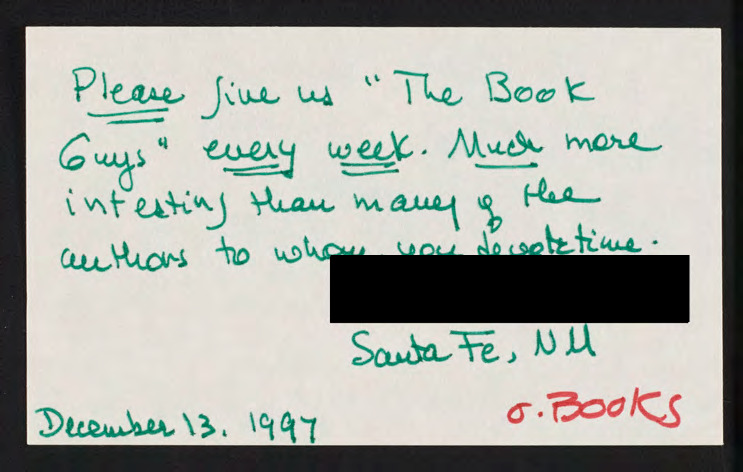 Please give us "The Book
Guys" every week. Much more
intesting than many of the
authors to whom you devote time.
Santa Fe, NM
o. BOOKS
December 13, 1997